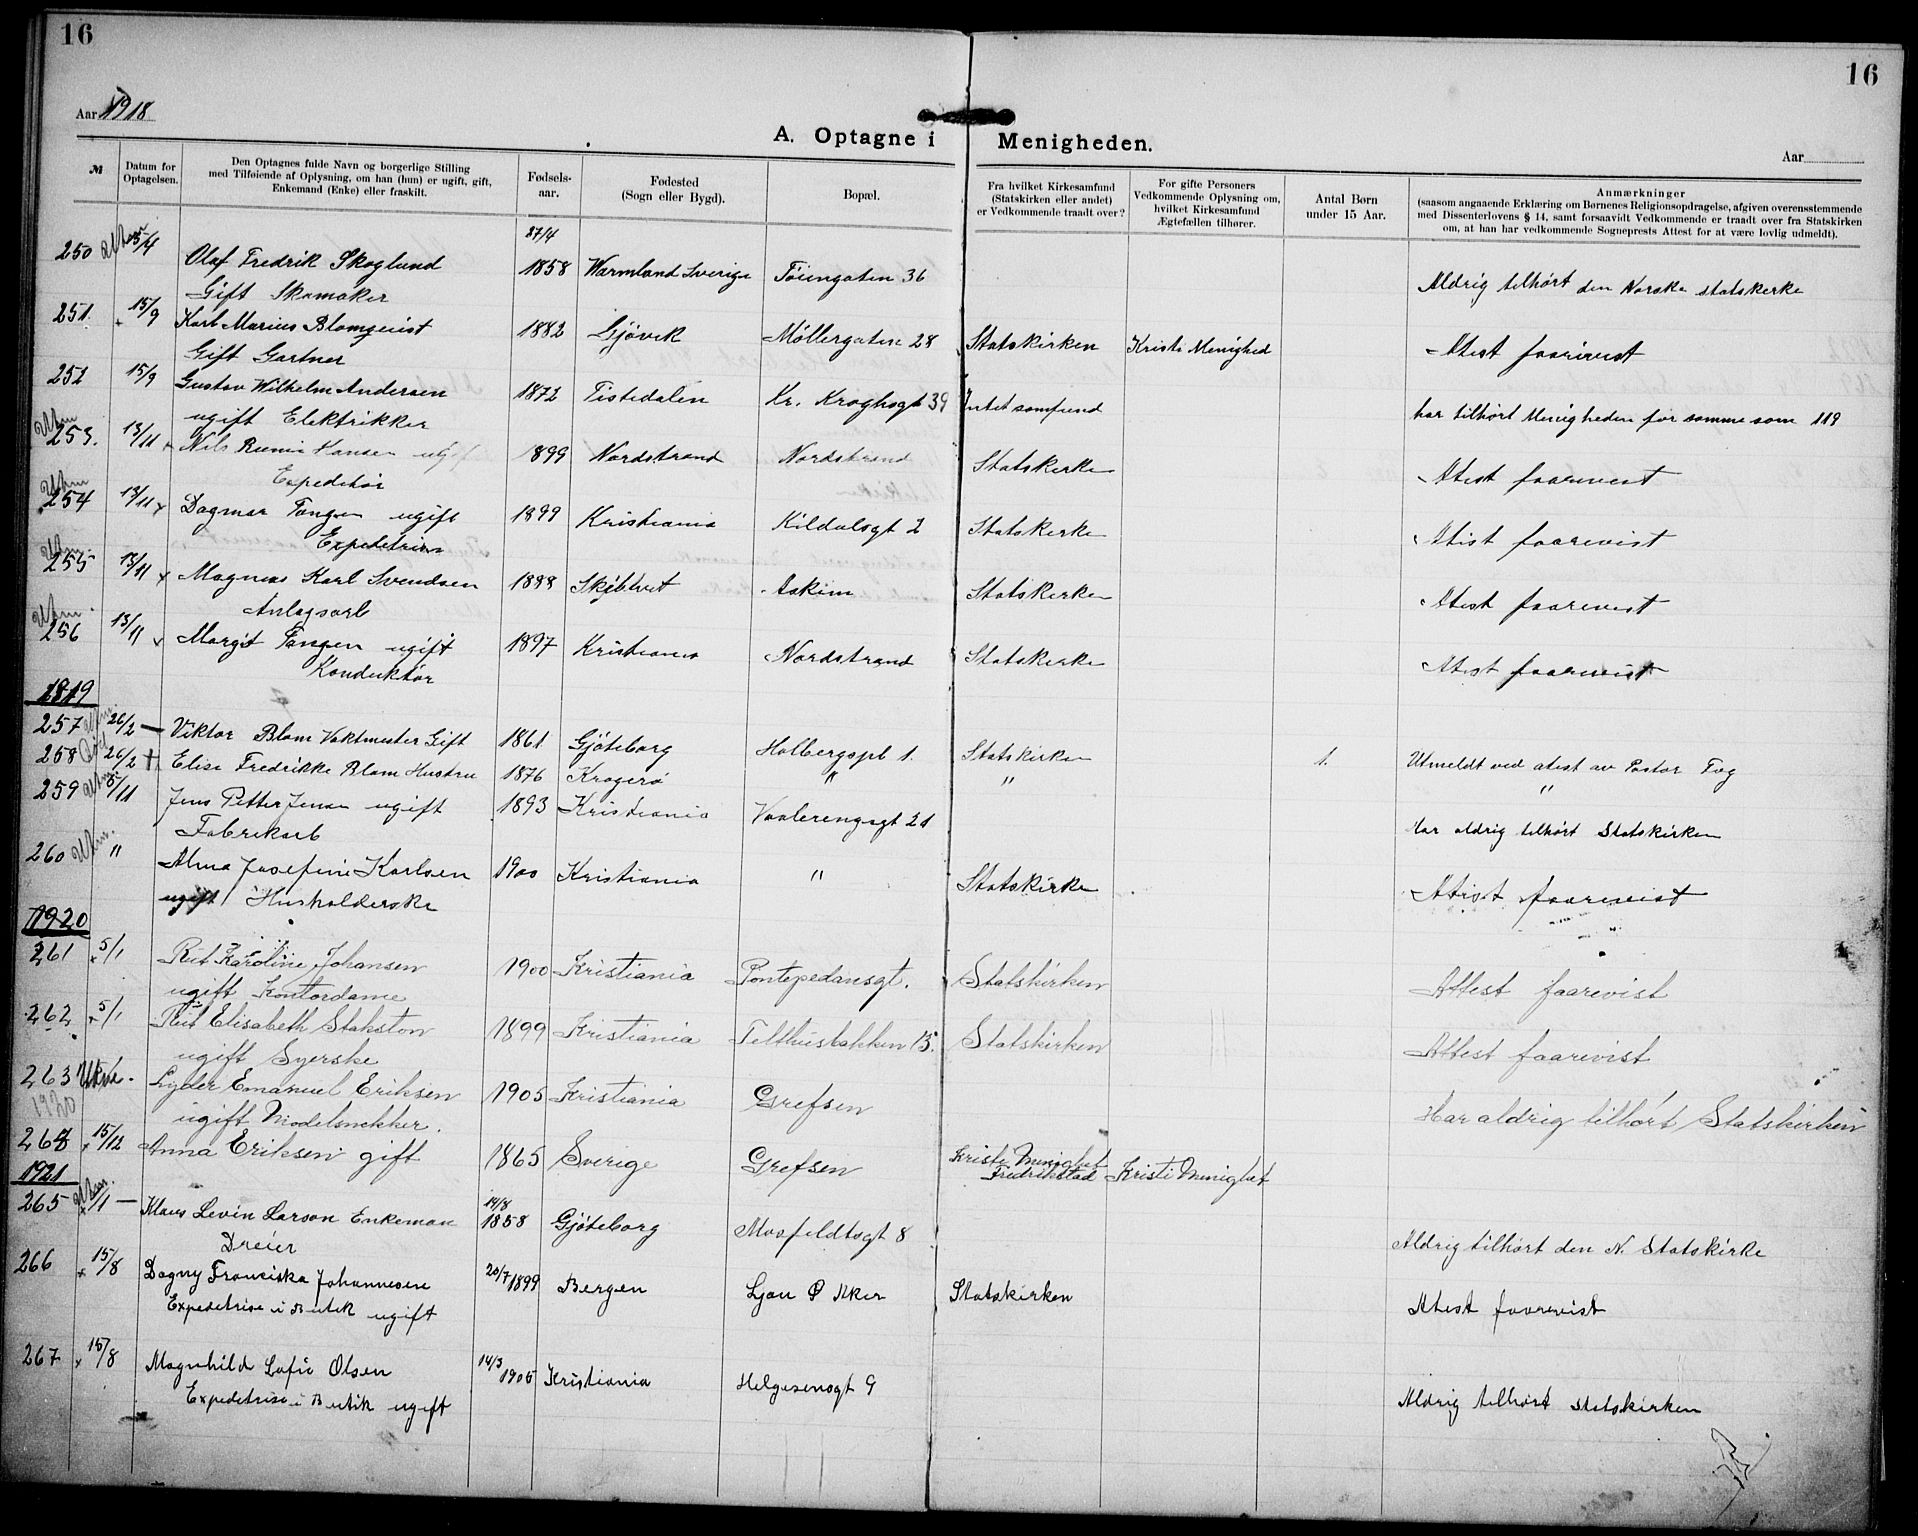 16
16
Aar 1918
A. Optagne i Menigheden.
Aar
№
Datum for Optagelsen.
Den Optagnes fulde Navn og borgerlige Stilling
med Tilføiende af Oplysning, om han (hun) er ugift, gift,
Enkemand (Enke) eller fraskilt.
Fødsels-
aar.
Fødested
(Sogn eller Bygd).
Bopæl.
Fra hvilket Kirkesamfund
(Statskirken eller andet)
er Vedkommende traadt over?
For gifte Personers
Vedkommende Oplysning om,
hvilket Kirkesamfund
Ægtefællen tilhører.
Antal Børn
under 15 Aar.
Anmærkninger
(saasom angaaende Erklæring om Børnenes Religionsopdragelse, afgiven overensstemmende
med Dissenterlovens § 14, samt forsaavidt Vedkommende er traadt over fra Statskirken
om, at han har vedkommende Sogneprests Attest for at være lovlig udmeldt).
27/4
250 Olaf Fredrik Skoglund 1858 Warmland Sverige Töiengaten 36 Aldrig tilhört den Norske statskerke
Gift Skomaker
251. 15/9 Karl Marius Blomquist 1882 Gjövik Möllergaten 28 Statskirken Kristi Menighed Atest faarevist
Gift Gartner
252 15/9 Gustav Wilhelm Andersen 1872 Tistedalen Kr. Kroghsgt 39 Intet samfund har tilhört Menigheden för samme som 119
ugift Elektrikker
Utm
253. 13/11 Nils Hansen ugift 1899 Nordstrand Nordstrand Statskerke Atest faarevist
Expeditör
Utm
254 13/11 Dagmar Tangen ugift 1899 Kristiania Kildalsgt 2 Statskerke Atist faarevist
Expeditrise
Utm
255 13/11 Magnus Karl Svendsen 1898 Skiebtvet Askim Statskerke Atest faarevist
Anlegsarb
Utm.
256 13/11 Margit Tangen ugift 1897 Kristiania Nordstrand Statskerke Atest faarevist
Konduktör
1919
257 26/2 — Viktor Blom Vaktmester Gift 1861 Gjöteborg Holbergspl 1. Statskirken 1. Utmeldt ved atest av Pastor Fog
258 26/2 Elise Fredrikke Blom Hustru 1876 Kragerö " " "
259 5/11 Jens Petter Jensen ugift 1893 Kristiania Vaalerengsgt 21 Har aldrig tilhört Statskirken
Fabrikarb
260 Utm. " Alma Josefine Karlsen 1900 Kristiania " Statskirke Atist faarevist
ugift Husholderske
1920
261 5/1 Rut Karoline Johansen 1900 Kristiania Pontopedansgt. Statskirken Attest faarevist
ugift Kontordame
262 5/1 Rut Elisabeth Stakston 1899 Kristiania Telthusbakken 15. Statskirken Attest faarevist
ugift Syerske
263 Utm. Lyder Emanuel Eriksen 1905 Kristiania Grefsen Har aldrig tilhört Statskirken
1920 ugift Modelsnekker.
264 15/12 Anna Eriksen gift 1865 Sverige Grefsen Kristi Menighet Fredrikstad Kristi Menighet
1921
14/8
265 Utm. /1 — Klaus Levin Larson Enkeman 1858 Gjöteborg Mosfeldtsgt 8 Aldrig tilhört den N. Statskirke
Dreier
266 15/8 Dagny Franciska Johannesen 20/7 1899 Bergen Ljan Ø Aker Statskirken Atest faarevist
Expeditrise i Butik ugift
267 15/8 Magnhild Sofie Olsen 14/3 1905 Kristiania Helgesensgt 9 Aldrig tilhört statskirken
Expeditrise i Butik ugift